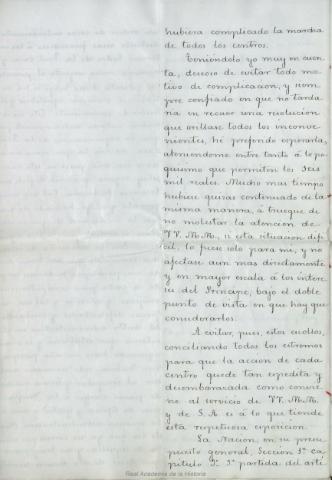 hubiera complicado la marcha
de todos los centros.
Teniéndolo yo muy en cuen-
ta, deseoso de evitar todo mo-
tivo de complicacion, y siem-
pre confiado en que no tarda-
ria en recaer una resolucion
que orillase todos los inconve-
nientes, hé preferido esperarla,
ateniendome entre tanto á lo po-
quisimo que permiten los seis
mil reales. Mucho mas tiempo
hubiese quizas continuado de la
misma manera, á trueque de
no molestar la atencion de
VV. MM., si esta situacion dif-
cil, lo fuese solo para mi, y no
afectase aun mas directamente
y en mayor escala á los intere-
ses del Principe, bajo el doble
punto de vista en que hay que
considerarlos.
A evitar, pues, estos escollos,
conciliando todos los estremos
para que la accion de cada
centro quede tan espedita y
desembarazada como convie-
ne al servicio de VV. MM.
y de S. A. es á lo que tiende
esta respetuosa esposicion.
La Nacion, en su presu-
puesto general, Seccion 1ª Ca-
pitulo 1º 3ª partida del arti-
Real Academia de la Historia